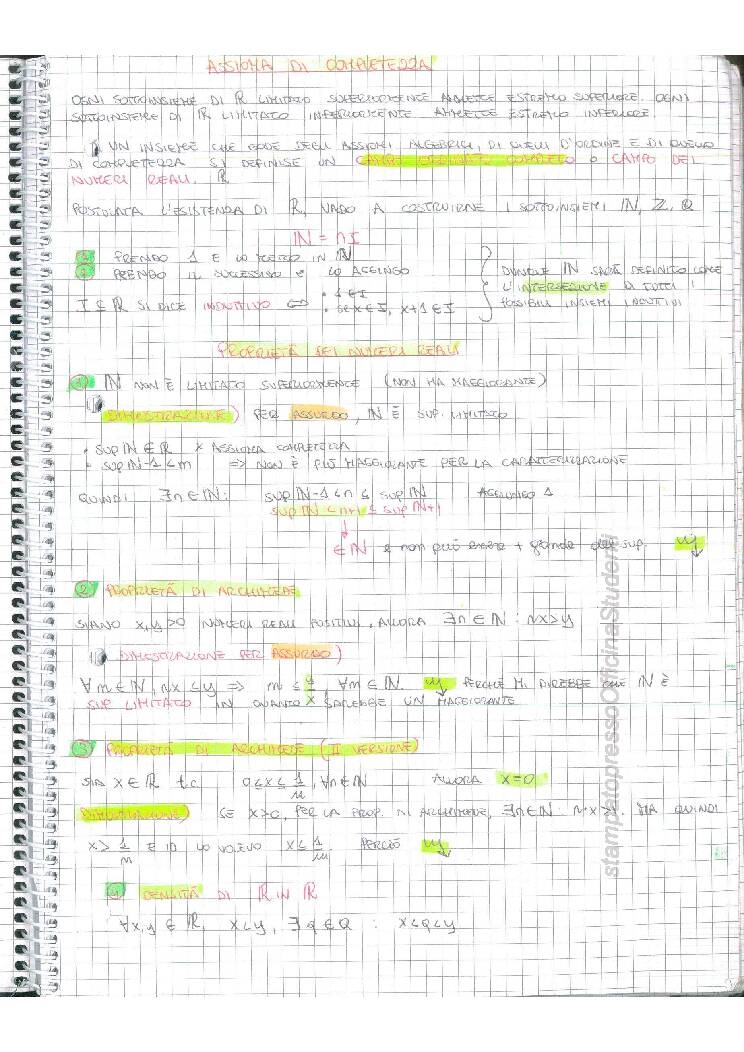 ASSIOMA DI COMPLETEZZA
OGNI SOTTOINSIEME DI ℝ LIMITATO SUPERIORMENTE AMMETTE ESTREMO SUPERIORE. OGNI
SOTTOINSIEME DI ℝ LIMITATO INFERIORMENTE AMMETTE ESTREMO INFERIORE.
UN INSIEME CHE GODE DEGLI ASSIOMI ALGEBRICI, DI QUELLI D'ORDINE E DI QUELLO
DI COMPLETEZZA SI DEFINISE UN CAMPO ORDINATO COMPLETO O CAMPO DEI
NUMERI REALI. ℝ
POSTULATA L'ESISTENZA DI ℝ, VADO A COSTRUIRNE I SOTTOINSIEMI ℕ, ℤ, ℚ
ℕ = ∩I
1 PRENDO 1 E LO METTO IN ℕ
2 PRENDO IL SUCESSIVO E LO AGGIUNGO
I ⊆ ℝ SI DICE INDUTTIVO ⇔ • 1 ∈ I
• se x ∈ I, x+1 ∈ I
DUNQUE ℕ SARÀ DEFINITO COME
L'INTERSEZIONE DI TUTTI I
POSSIBILI INSIEMI INDUTTIVI
PROPRIETÀ DEI NUMERI REALI
1 ℕ NON È LIMITATO SUPERIORMENTE (NON HA MAGGIORANTE)
DIMOSTRAZIONE) PER ASSURDO, ℕ È SUP. LIMITATO
• SUP ℕ ∈ ℝ × ASSIOMA COMPLETEZZA
• SUP ℕ-1 < m ⇒ NON È PIÙ MAGGIORANTE PER LA CARATTERIZZAZIONE
QUINDI ∃n ∈ ℕ: SUP ℕ-1 < n ≤ SUP ℕ AGGIUNGO 1
SUP ℕ < n+1 ≤ SUP ℕ+1
↓
∈ ℕ e non può essere + grande del sup.
2 PROPRIETÀ DI ARCHIMEDE
SIANO x,y>0 NUMERI REALI POSITIVI, ALLORA ∃n ∈ ℕ : nx>y
DIMOSTRAZIONE PER ASSURDO)
∀m ∈ ℕ, nx ≤ y ⇒ m ≤ y/x, ∀m ∈ ℕ. PERCHÉ MI DIREBBE CHE ℕ È
SUP. LIMITATO IN QUANTO SAREBBE UN MAGGIORANTE
3 PROPRIETÀ DI ARCHIMEDE (II VERSIONE)
SIA x ∈ ℝ t.c 0 ≤ x ≤ 1/n, ∀n ∈ ℕ ALLORA x=0
DIMOSTRAZIONE) SE x>0, PER LA PROP. DI ARCHIMEDE, ∃n ∈ ℕ n·x>1. MA QUINDI
x > 1/m E IO LO VOLEVO x ≤ 1/m. PERCIÒ
4 DENSITÀ DI ℝ IN ℝ
∀x,y ∈ ℝ, x<y, ∃q ∈ ℚ : x<q<y
stampatopressoOfficinaStudenti